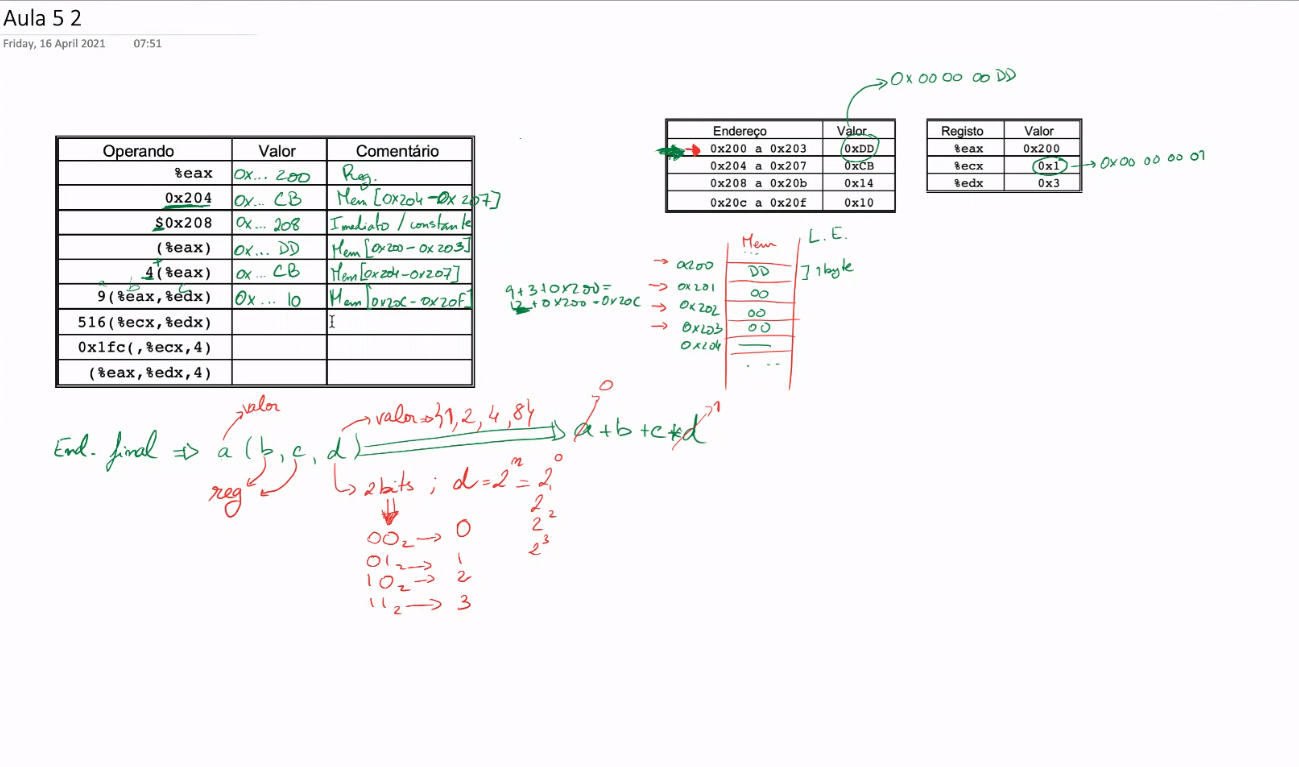 Aula 5 2
Friday, 16 April 2021 07:51
0x 00 00 00 DD
Operando Valor Comentário
%eax 0x... 200 Reg.
0x204 0x... CB Mem [0x204-0x207]
$0x208 0x... 208 Imediato / constante
(%eax) 0x... DD Mem[0x200-0x203]
4(%eax) 0x... CB Mem[0x204-0x207]
a b c
9(%eax,%edx) 0x... 10 Mem[0x20C-0x20F]
516(%ecx,%edx)
0x1fc(,%ecx,4)
(%eax,%edx,4)
Endereço Valor
0x200 a 0x203 0xDD
0x204 a 0x207 0xCB
0x208 a 0x20b 0x14
0x20c a 0x20f 0x10
Registo Valor
%eax 0x200
%ecx 0x1 → 0x00 00 00 01
%edx 0x3
Mem L.E.
...
→ 0x200 DD ] 1 byte
→ 0x201 00
→ 0x202 00
→ 0x203 00
0x204
....
9+3+0x200=
12+0x200=0x20C
valor
valor⇒{1, 2, 4, 8}
0
1
End. final ⇒ a (b, c, d) ⇒ a+b+c*d
reg
↳ 2 bits ; d=2^n = 2^0
2
2^2
2^3
00₂ → 0
01₂ → 1
10₂ → 2
11₂ → 3